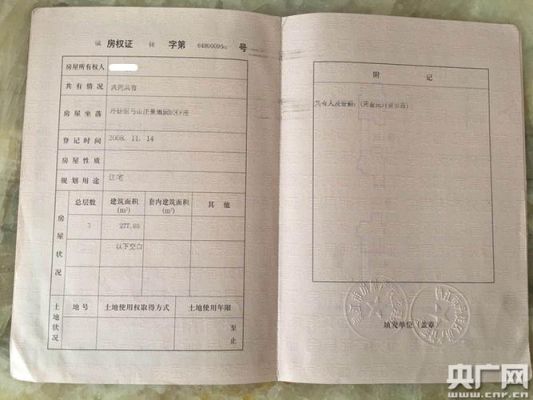 房权证 字第 号
房屋所有权人
共有情况 共同共有
房屋坐落
登记时间 2008. 11. 14
房屋性质
规划用途 住宅
房屋状况
总层数 建筑面积(m²) 套内建筑面积(m²) 其他
3 277.85
以下空白
土地状况
地号 土地使用权取得方式 土地使用年限
至
止
附 记
填发单位(盖章)
央广网
www.cnr.cn